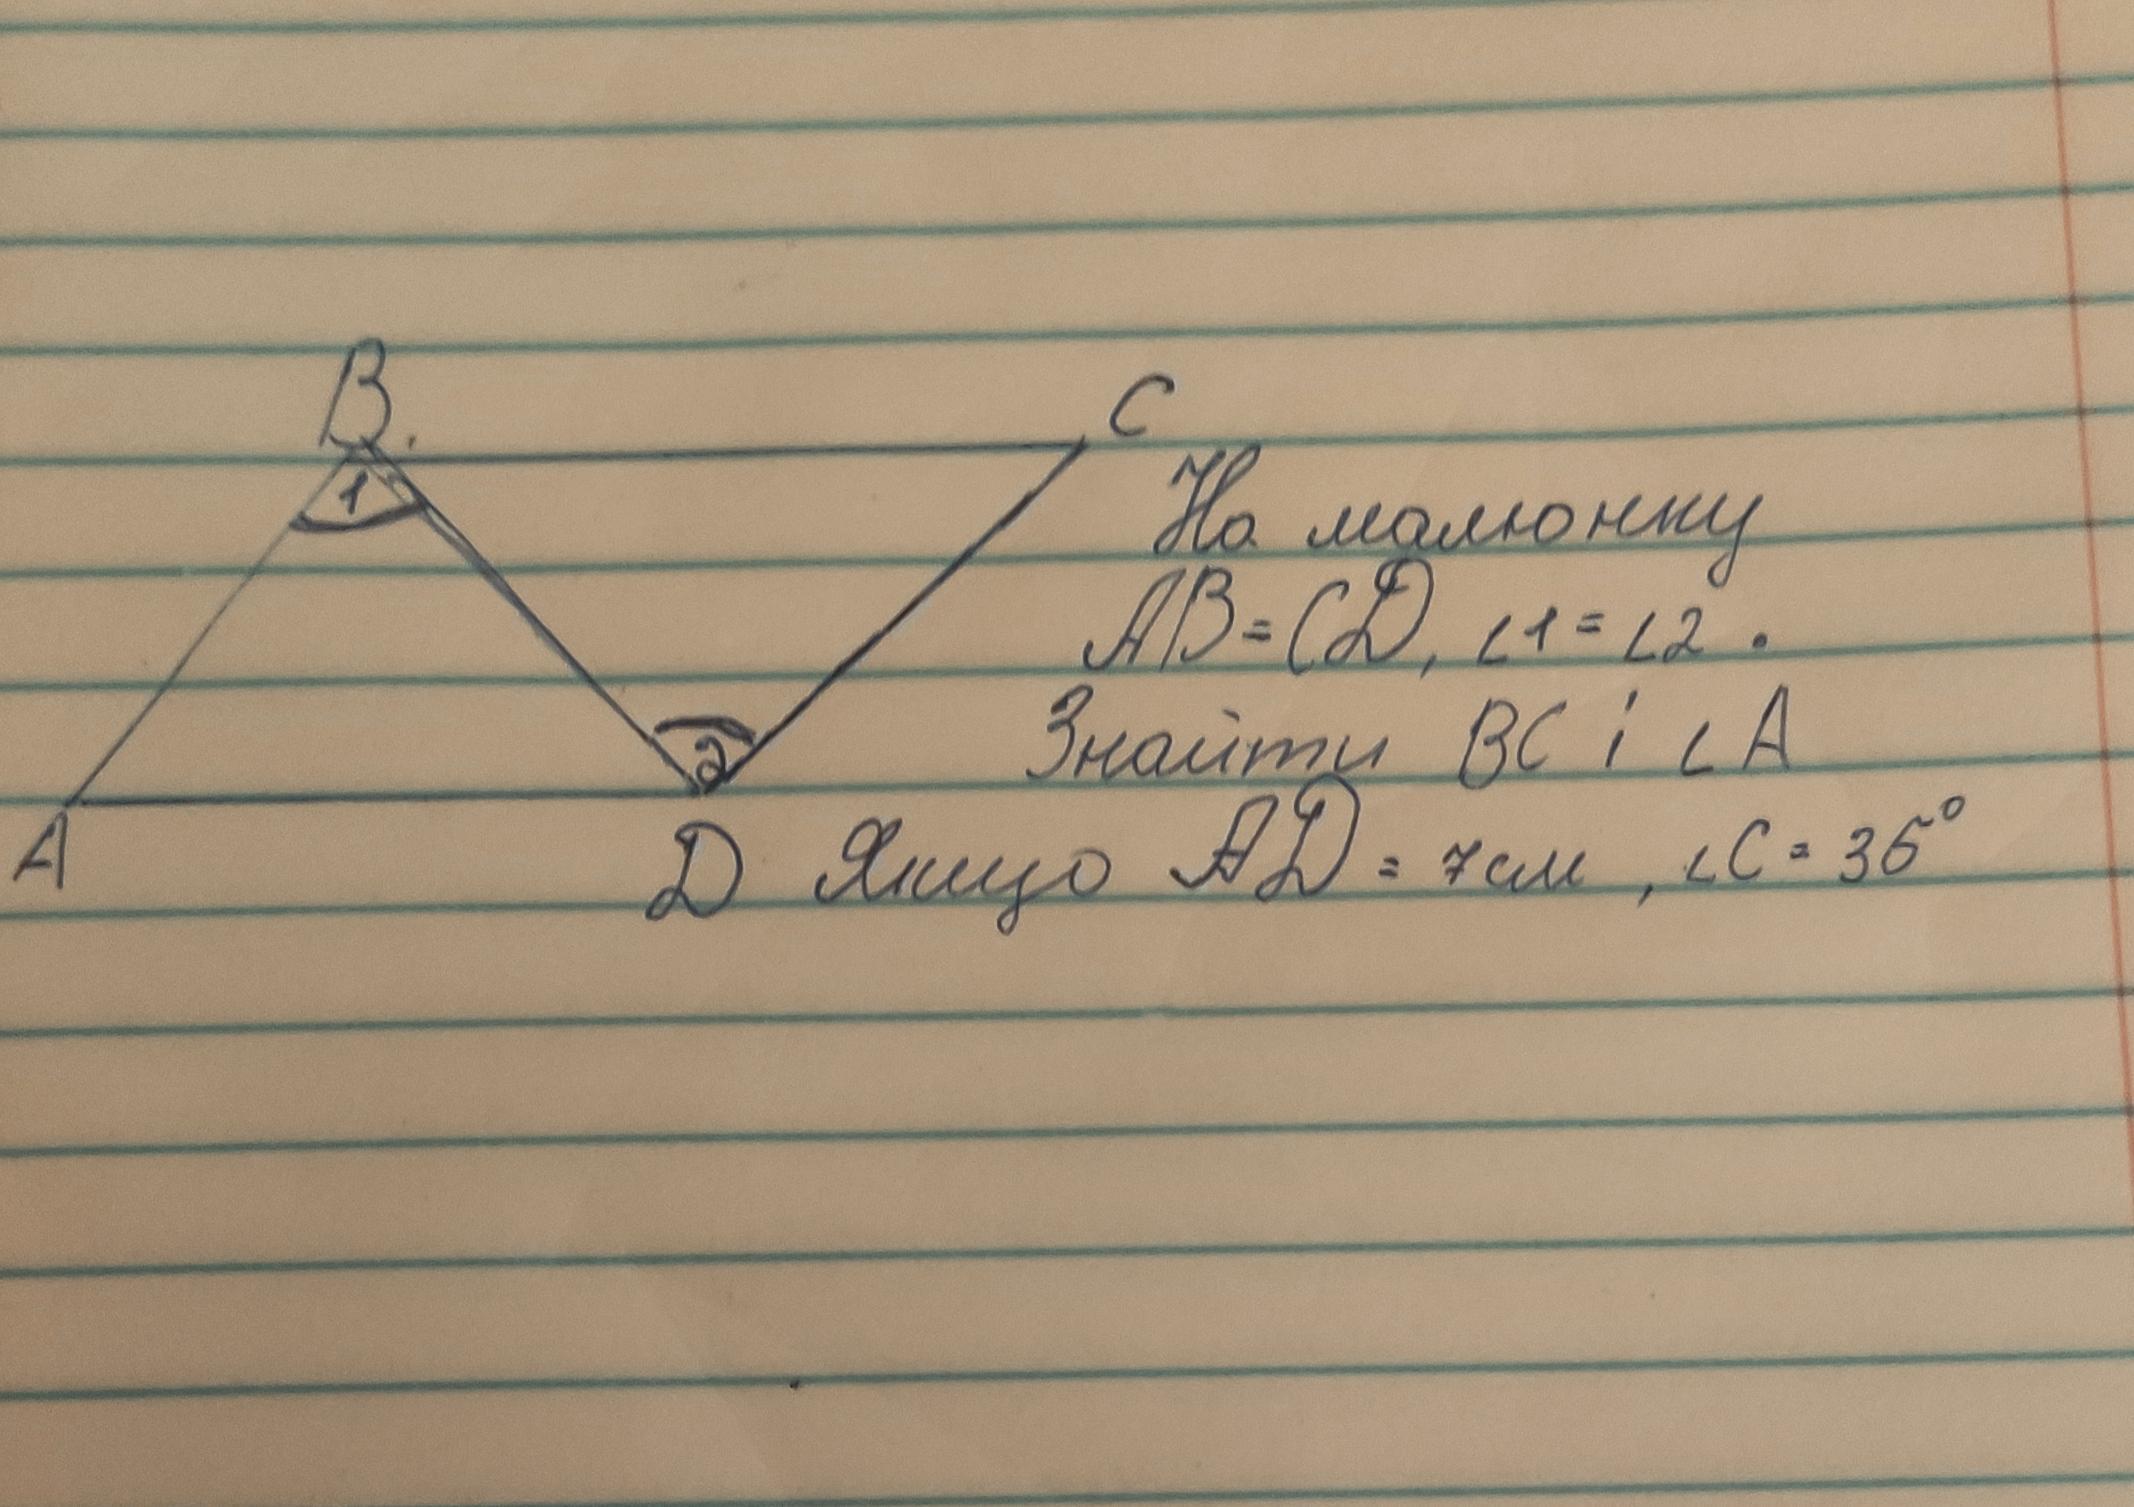 B.
C
1
2
A
D
На малюнку
AB=CD, ∠1=∠2.
Знайти BC і ∠A
Якщо AD=7см, ∠C=36°